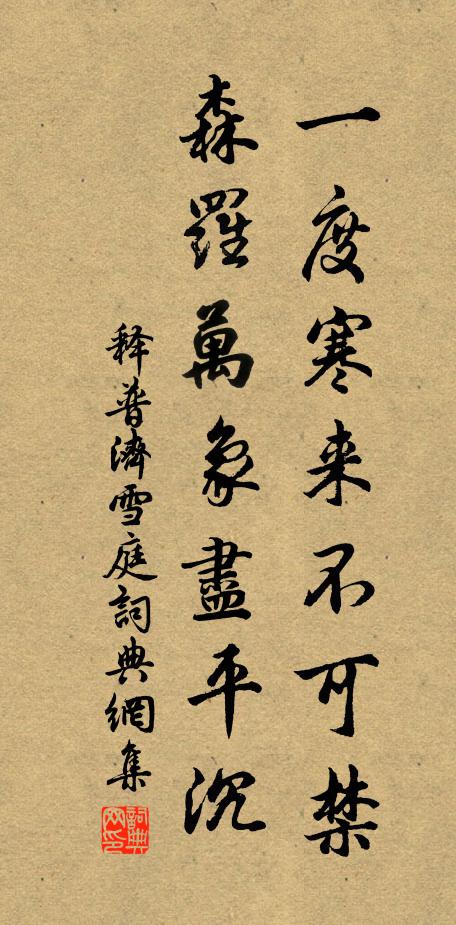 一度寒来不可禁
森羅萬象盡平沉
释普濟雪庭詞典網集
詞典网印